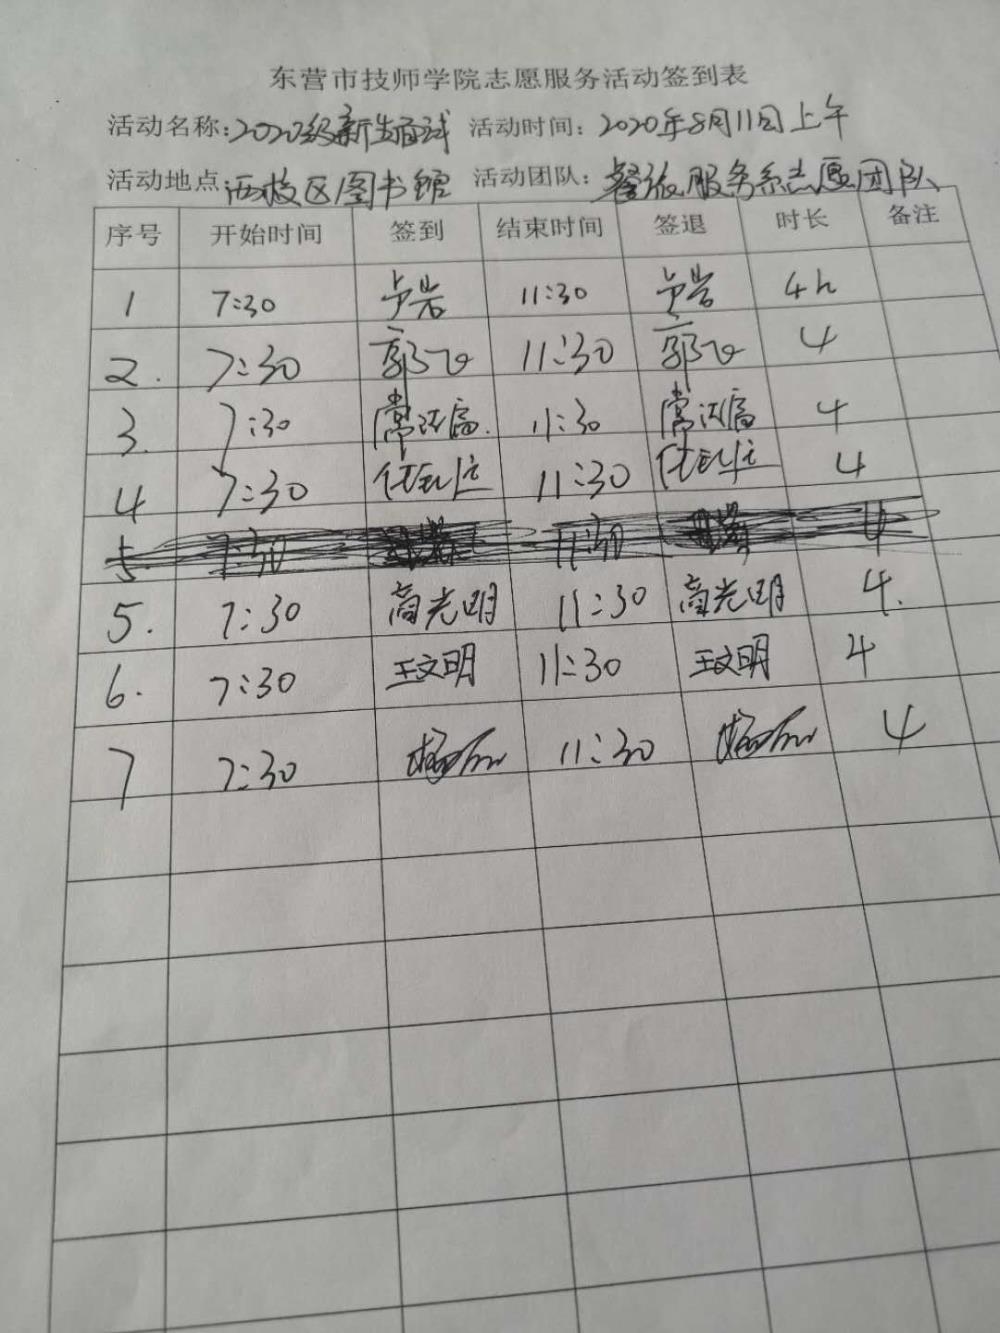 东营市技师学院志愿服务活动签到表
活动名称:2020级新生面试 活动时间: 2020年8月11日上午
活动地点:西校区图书馆 活动团队: 餐旅服务系志愿团队
序号 开始时间 签到 结束时间 签退 时长 备注
1 7:30 卢岩 11:30 卢岩 4h
2. 7:30 郭飞 11:30 郭飞 4
3. 7:30 11:30 4
4 7:30 11:30 4
5. 7:30 11:30 4
5. 7:30 高光明 11:30 高光明 4.
6. 7:30 王文明 11:30 王文明 4
7 7:30 11:30 4